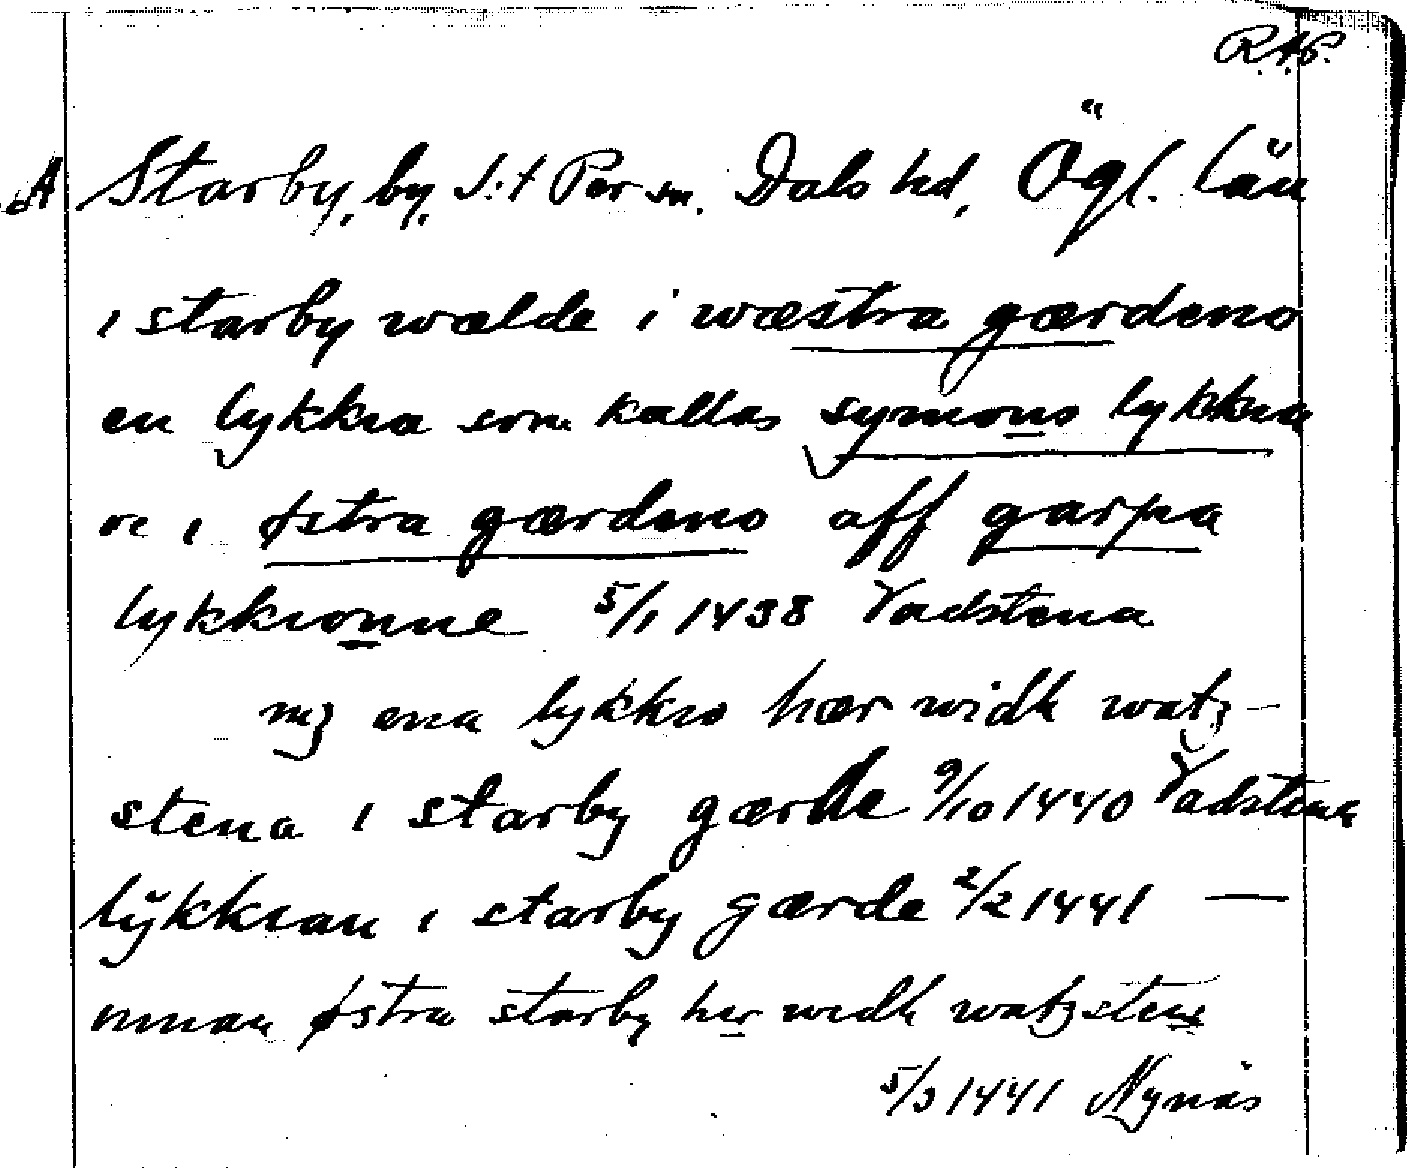 R.A.P.
A Starby, by, S:t Per sn. Dals hd, Ögl. län
i starby wælde i wæstra gærdeno
en lykkia som kallas symons lykkia
oc i østra gærdeno aff garpa
lykkionne 5/1 1438 Vadstena
ena lykkio hær widh watz-
stena i starby gærde 9/10 1440 Vadstena
lÿkkian i starby gærde 2/2 1441 —
innan østra starby her widh watzstene
5/3 1441 Nynäs